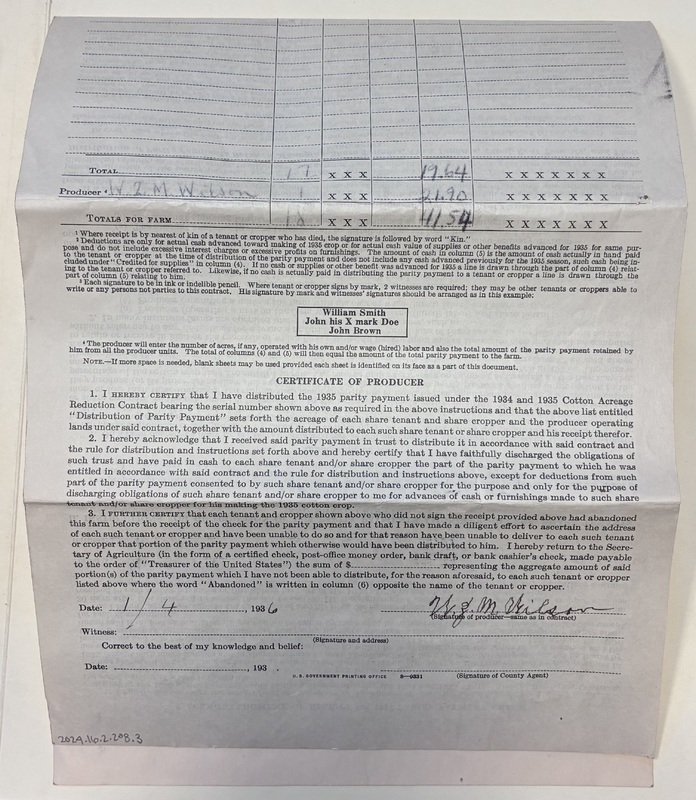 TOTAL 17 X X X 19.64 X X X X X X X
Producer ⁴ W. Z. M. Wilson 1 X X X 21.90 X X X X X X X
TOTALS FOR FARM 18 X X X 41.54 X X X X X X X
¹ Where receipt is by nearest of kin of a tenant or cropper who has died, the signature is followed by word "Kin."
² Deductions are only for actual cash advanced toward making of 1935 crop or for actual cash value of supplies or other benefits advanced for 1935 for same pur-
pose and do not include excessive interest charges or excessive profits on furnishings. The amount of cash in column (5) is the amount of cash actually in hand paid
to the tenant or cropper at time of distribution of the parity payment and does not include any cash advanced previously for the 1935 season, such cash being in-
cluded under "Credited for supplies" in column (4). If no cash or supplies or other benefit was advanced for 1935 a line is drawn through the part of column (4) relat-
ing to the tenant or cropper referred to. Likewise, if no cash is actually paid in distributing the parity payment to a tenant or cropper a line is drawn through the
part of column (5) relating to him.
³ Each signature to be in ink or indelible pencil. Where tenant or cropper signs by mark, 2 witnesses are required; they may be other tenants or croppers able to
write or any persons not parties to this contract. His signature by mark and witnesses' signatures should be arranged as in this example:
William Smith
John his X mark Doe
John Brown
⁴ The producer will enter the number of acres, if any, operated with his own and/or wage (hired) labor and also the total amount of the parity payment retained by
him from all the producer units. The total of columns (4) and (5) will then equal the amount of the total parity payment to the farm.
NOTE.—If more space is needed, blank sheets may be used provided each sheet is identified on its face as a part of this document.
CERTIFICATE OF PRODUCER
1. I HEREBY CERTIFY that I have distributed the 1935 parity payment issued under the 1934 and 1935 Cotton Acreage
Reduction Contract bearing the serial number shown above as required in the above instructions and that the above list entitled
"Distribution of Parity Payment" sets forth the acreage of each share tenant and share cropper and the producer operating
lands under said contract, together with the amount distributed to each such share tenant or share cropper and his receipt therefor.
2. I hereby acknowledge that I received said parity payment in trust to distribute it in accordance with said contract and
the rule for distribution and instructions set forth above and hereby certify that I have faithfully discharged the obligations of
such trust and have paid in cash to each share tenant and/or share cropper the part of the parity payment to which he was
entitled in accordance with said contract and the rule for distribution and instructions above, except for deductions from such
part of the parity payment consented to by such share tenant and/or share cropper for the purpose and only for the purpose of
discharging obligations of such share tenant and/or share cropper to me for advances of cash or furnishings made to such share
tenant and/or share cropper for his making the 1935 cotton crop.
3. I FURTHER CERTIFY that each tenant and cropper shown above who did not sign the receipt provided above had abandoned
this farm before the receipt of the check for the parity payment and that I have made a diligent effort to ascertain the address
of each such tenant or cropper and have been unable to do so and for that reason have been unable to deliver to each such tenant
or cropper that portion of the parity payment which otherwise would have been distributed to him. I hereby return to the Secre-
tary of Agriculture (in the form of a certified check, post-office money order, bank draft, or bank cashier's check, made payable
to the order of "Treasurer of the United States") the sum of $ representing the aggregate amount of said
portion(s) of the parity payment which I have not been able to distribute, for the reason aforesaid, to each such tenant or cropper
listed above where the word "Abandoned" is written in column (6) opposite the name of the tenant or cropper.
Date: 1/4, 1936 W. Z. M. Wilson
(Signature of producer—same as in contract)
Witness:
(Signature and address)
Correct to the best of my knowledge and belief:
Date: , 193 .
U. S. GOVERNMENT PRINTING OFFICE 8—9331 (Signature of County Agent)
2024.16.2.208.3